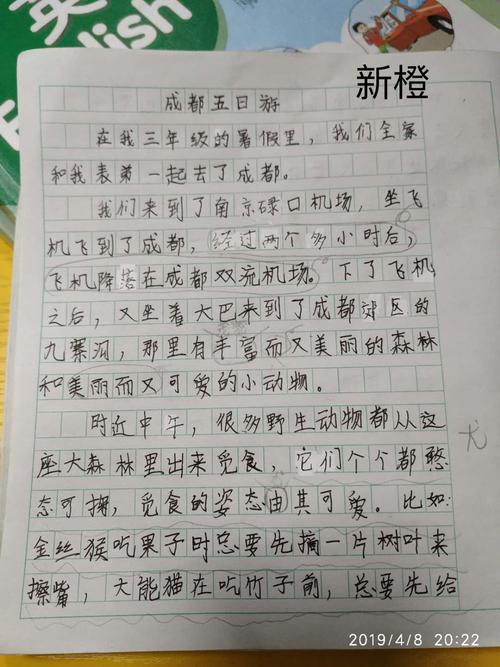 English
新橙
成都五日游
在我三年级的暑假里，我们全家
和我表弟一起去了成都。
我们来到了南京碌口机场，坐飞
机飞到了成都，经过两个多小时后，
飞机降落在成都双流机场。下了飞机
之后，又坐着大巴来到了成都郊区的
九寨沟，那里有丰富而又美丽的森林
和美丽而又可爱的小动物。
附近中午，很多野生动物都从这
座大森林里出来觅食，它们个个都憨
态可掬，觅食的姿态由其可爱。比如：
尤
金丝猴吃果子时总要先摘一片树叶来
擦嘴，大能猫在吃竹子前，总要先给
2019/4/8 20:22